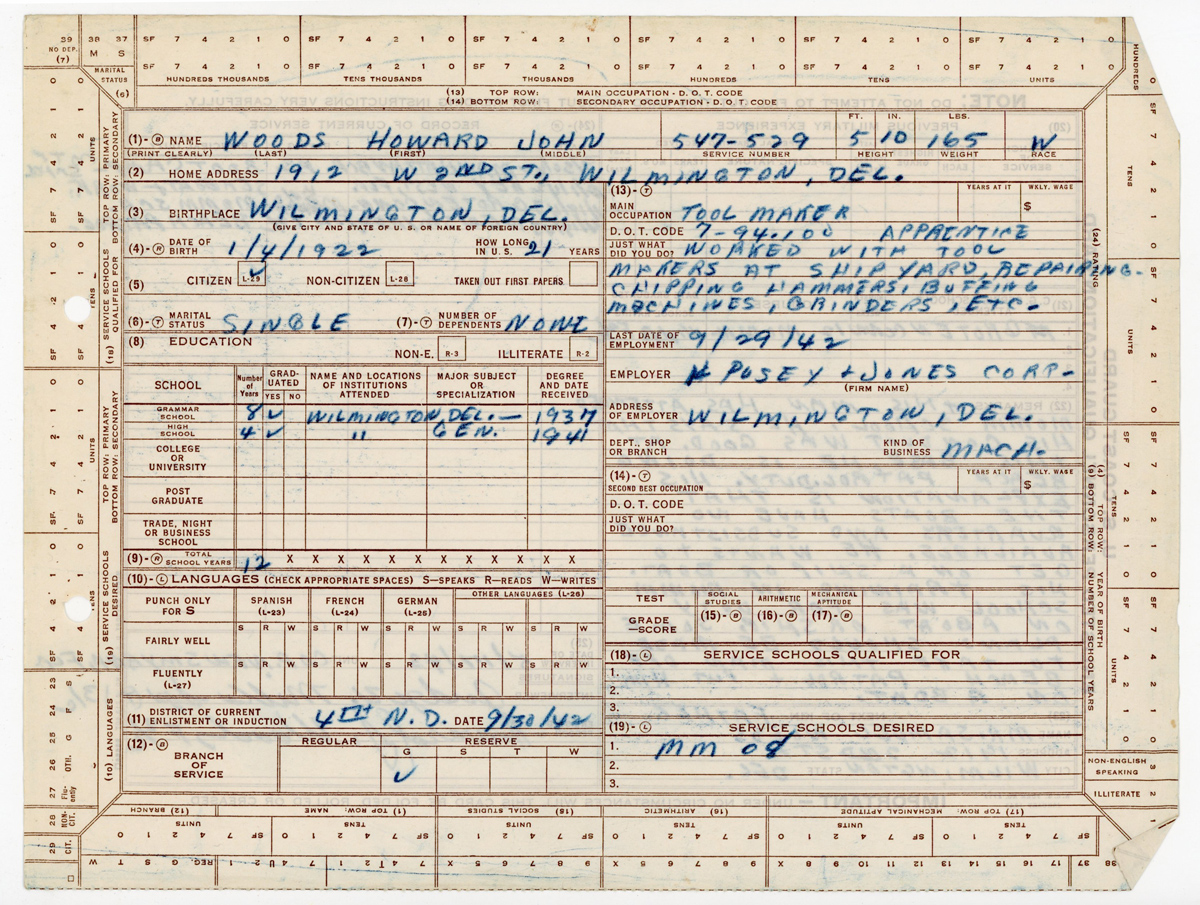 39 38 37 SF 7 4 2 1 0 SF 7 4 2 1 0 SF 7 4 2 1 0 SF 7 4 2 1 0 SF 7 4 2 1 0 SF 7 4 2 1 0
NO DEP. (7) M S
MARITAL STATUS (6)
SF 7 4 2 1 0 SF 7 4 2 1 0 SF 7 4 2 1 0 SF 7 4 2 1 0 SF 7 4 2 1 0 SF 7 4 2 1 0
HUNDREDS THOUSANDS TEN THOUSANDS THOUSANDS HUNDREDS TENS UNITS
(13) TOP ROW: MAIN OCCUPATION - D. O. T. CODE
(14) BOTTOM ROW: SECONDARY OCCUPATION - D. O. T. CODE
FT. IN. LBS.
(1)-R NAME WOODS HOWARD JOHN 547-529 5 10 165 W
(PRINT CLEARLY) (LAST) (FIRST) (MIDDLE) SERVICE NUMBER HEIGHT WEIGHT RACE
(2) HOME ADDRESS 1912 W 2ND ST., WILMINGTON, DEL.
(3) BIRTHPLACE WILMINGTON, DEL.
(GIVE CITY AND STATE OF U. S. OR NAME OF FOREIGN COUNTRY)
(4)-R DATE OF BIRTH 1/4/1922 HOW LONG IN U.S. 21 YEARS
(5) CITIZEN L-29 ✓ NON-CITIZEN L-28 TAKEN OUT FIRST PAPERS
(6)-T MARITAL STATUS SINGLE (7)-T NUMBER OF DEPENDENTS NONE
(8) EDUCATION NON-E. R-3 ILLITERATE R-2
SCHOOL Number of Years GRADUATED YES NO NAME AND LOCATIONS OF INSTITUTIONS ATTENDED MAJOR SUBJECT OR SPECIALIZATION DEGREE AND DATE RECEIVED
GRAMMAR SCHOOL 8 ✓ WILMINGTON, DEL. — 1937
HIGH SCHOOL 4 ✓ " GEN. 1941
COLLEGE OR UNIVERSITY
POST GRADUATE
TRADE, NIGHT OR BUSINESS SCHOOL
(9)-R TOTAL SCHOOL YEARS 12 X X X X X X X X X X X X
(10)-L LANGUAGES (CHECK APPROPRIATE SPACES) S—SPEAKS R—READS W—WRITES
PUNCH ONLY FOR S SPANISH (L-23) FRENCH (L-24) GERMAN (L-25) OTHER LANGUAGES (L-26)
FAIRLY WELL S R W S R W S R W S R W S R W
FLUENTLY (L-27) S R W S R W S R W S R W S R W
(11) DISTRICT OF CURRENT ENLISTMENT OR INDUCTION 4TH N.D. DATE 9/30/42
(12)-R BRANCH OF SERVICE REGULAR RESERVE
G S T W
✓
(13)-T MAIN OCCUPATION TOOL MAKER YEARS AT IT WKLY. WAGE $
D. O. T. CODE 7-94.100 APPRENTICE
JUST WHAT DID YOU DO? WORKED WITH TOOL
MAKERS AT SHIPYARD, REPAIRING-
CHIPPING HAMMERS, BUFFING
MACHINES, GRINDERS, ETC.
LAST DATE OF EMPLOYMENT 9/29/42
EMPLOYER PUSEY + JONES CORP-
(FIRM NAME)
ADDRESS OF EMPLOYER WILMINGTON, DEL.
DEPT., SHOP OR BRANCH KIND OF BUSINESS MACH.
(14)-T SECOND BEST OCCUPATION YEARS AT IT WKLY. WAGE $
D. O. T. CODE
JUST WHAT DID YOU DO?
TEST SOCIAL STUDIES ARITHMETIC MECHANICAL APTITUDE
GRADE—SCORE (15)-R (16)-R (17)-R
(18)-L SERVICE SCHOOLS QUALIFIED FOR
1.
2.
3.
(19)-L SERVICE SCHOOLS DESIRED
1. MM
2.
3.
NON-ENGLISH SPEAKING 3
ILLITERATE 2
(12) BRANCH (1) TOP ROW: NAME (15) SOCIAL STUDIES (16) ARITHMETIC (17) MECHANICAL APTITUDE
UNITS TENS UNITS TENS UNITS TENS UNITS TENS
TOP ROW: PRIMARY
BOTTOM ROW: SECONDARY
(18) SERVICE SCHOOLS QUALIFIED FOR
TOP ROW: PRIMARY
BOTTOM ROW: SECONDARY
(19) SERVICE SCHOOLS DESIRED
(10) LANGUAGES
HUNDREDS
TENS
UNITS
(24) RATING
(4) TOP ROW: YEAR OF BIRTH
(9) BOTTOM ROW: NUMBER OF SCHOOL YEARS